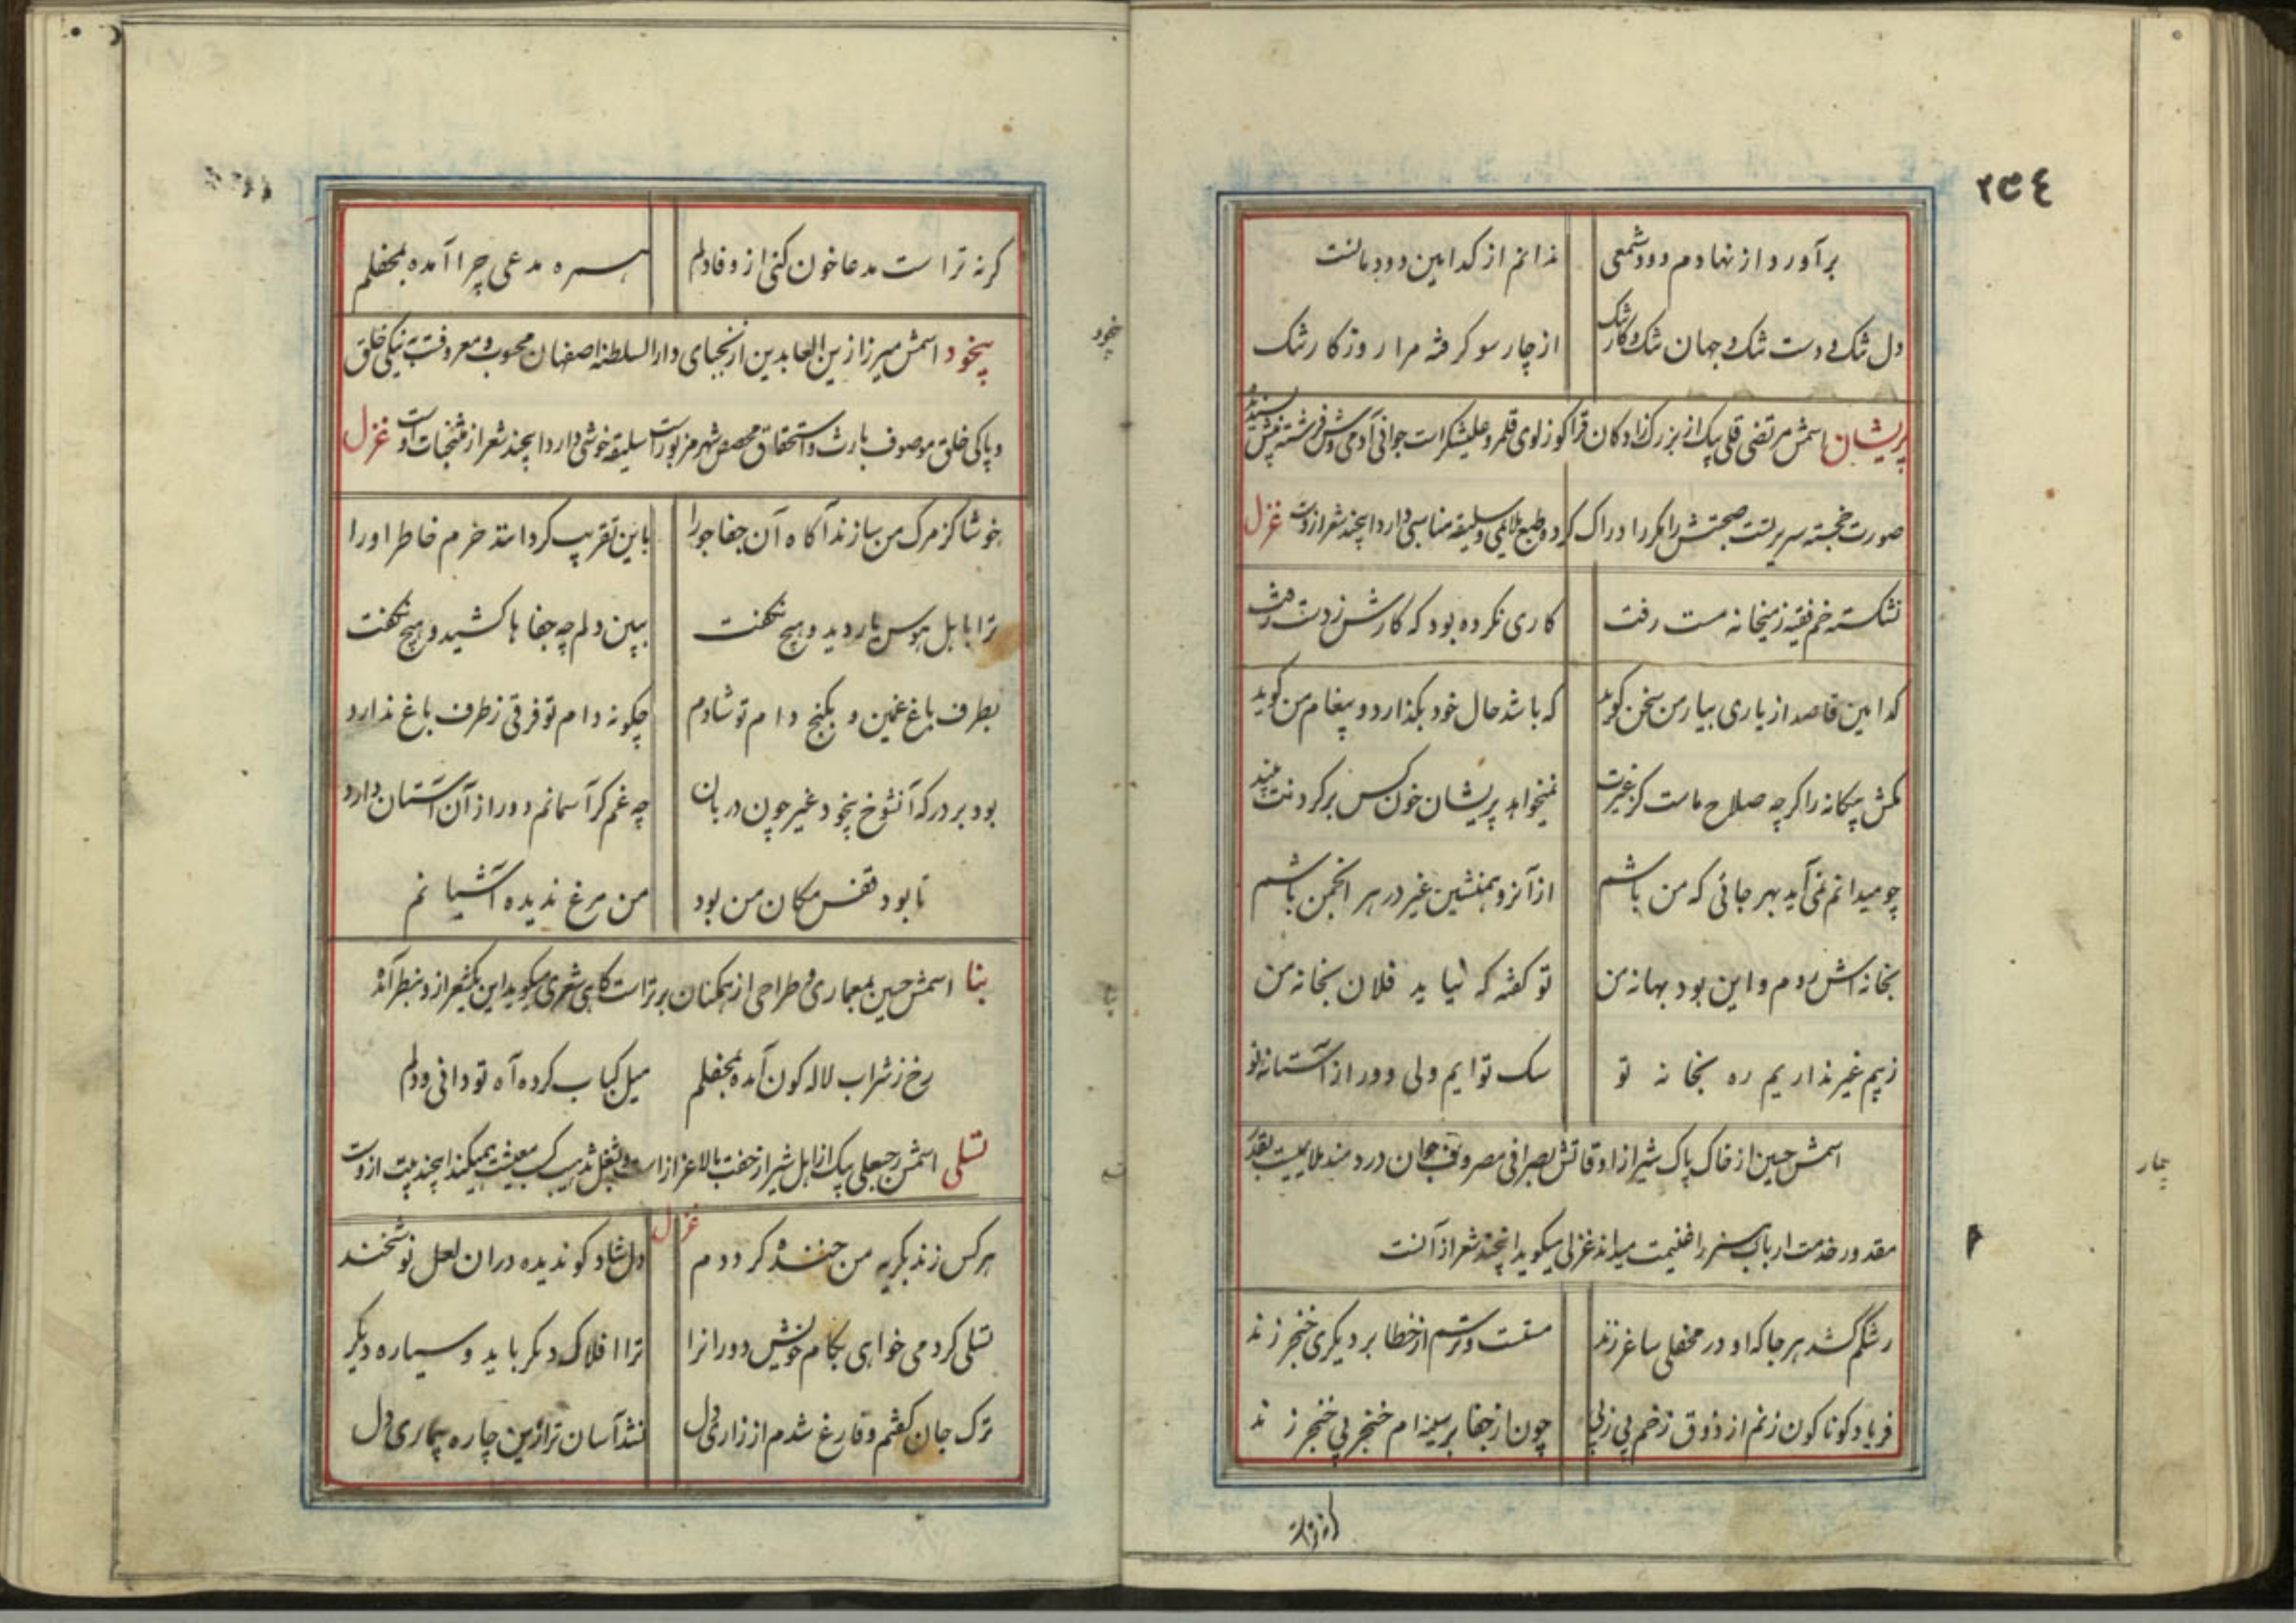 ۲۳۴
برآورد از نهادم دود شمعی ندانم از کدامین دودمانست
دل تنک و دست تنک و جهان تنک و کار تنک از چار سو کرفته مرا روزکار تنک
پریشان اسمش مرتضی قلی بیک از بزرک زادکان قراکوزلوی قلمرو علیشکر است جوانی آدمی وش فرشته منش پسندیده
صورت خجسته سیرتست صحبتش را مکرر ادراک کرده و طبع ملایمی و سلیقه مناسبی دارد اینچند شعر از وست غزل
نشکسته خم فقیه ز میخانه مست رفت کاری نکرده بود که کارش ز دست رفت
کدامین قاصد از یاری بیار من سخن کوید که باشد حال خود بکذارد و پیغام من کوید
مکش بیکانه را کرچه صلاح ماست کز غیرت نمیخواهد پریشان خون کس بر کردنت بیند
چو میدانم نمی‌آید بهر جائی که من باشم از آنرو همنشین غیر در هر انجمن باشم
بخانه‌اش روم و این بود بهانه من تو کفته که نیاید فلان بخانه من
ز بیم غیر نداریم ره بخانه تو سک توایم ولی دور از آستانه تو
اسمش حسین از خاک پاک شیراز اوقاتش بصرافی مصروف جوان دردمند ملایمیست بقدر
مقدور خدمت ارباب هنر را غنیمت میداند غزلی میکوید اینچند شعر از آنست
رشکم کشد هر جا که او در محفلی ساغر زند مستست و ترسم از خطا بر دیکری خنجر زند
فریاد کوناکون زنم از ذوق زخم پی ز پی چون از جفا بر سینه‌ام خنجر پی خنجر زند
کرنه ترا
بیمار
کرنه تراست مدعا خون کنی از وفا دلم همره مدعی چرا آمده بمحفلم
بیخود اسمش میرزا زین العابدین از نجبای دارالسلطنه اصفهان محبوب و معروفست به نیکی خلق
و پاکی خلق موصوف بارث و استحقاق محصص شهر مزبور است سلیقه خوشی دارد اینچند شعر از منتخبات اوست غزل
خوشا کز مرک من سازند آکاه آن جفاجو را باین تقریب کردانند خرم خاطر او را
ترا باهل هوس یار دید و هیچ نکفت ببین دلم چه جفاها کشید و هیچ نکفت
بطرف باغ غمین و بکنج دام تو شادم چکونه دام تو فرقی ز طرف باغ ندارد
بود بر درکه آنشوخ بیخود غیر چون دربان چه غم کر آسمانم دور از آن آستان دارد
تا بود قفس مکان من بود من مرغ ندیده آشیانم
بنا اسمش حسین بمعماری و طراحی از همکنان برتر است کاهی شعری میکوید این یکشعر ازو بنظر آمد
رخ ز شراب لاله کون آمده بمحفلم میل کباب کرده آه تو دانی و دلم
تسلی اسمش رجبعلی بیک از اهل شیراز خفت بالاعزاز است و بشغل تذهیب کسب معیشت میکند اینچند بیت از وست
غزل
هر کس زند بکریه من خنده کردم دلشاد کو ندیده در آن لعل نوشخند
تسلی کر دمی خواهی بکام خویش دورانرا ترا افلاک دیکر باید و سیاره دیکر
ترک جان کفتم و فارغ شدم از زاری دل نشد آسان تر ازین چاره بیماری دل
بیخود
بنا